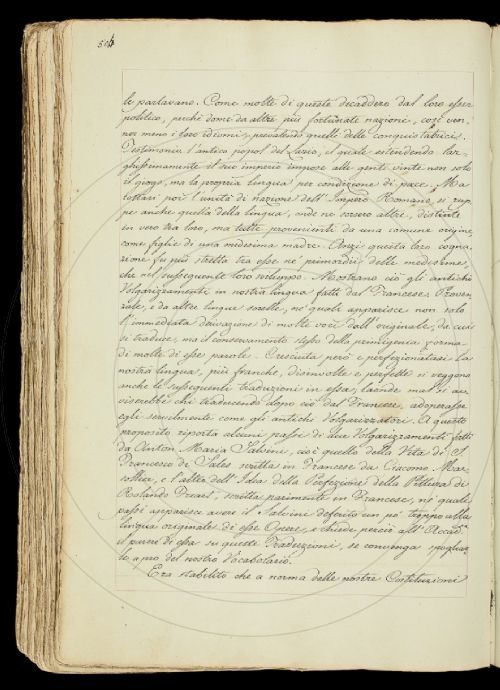 504
le parlavano. Come molte di queste decaddero dal loro esser
politico, perchè dome da altre più fortunate nazioni, così ven-
ner meno i loro idiomi, prevalendo quello delle conquistatrici.
Testimonio l'antico popol del Lazio, il quale estendendo lar-
ghissimamente il suo imperio impose alle genti vinte non solo
il giogo, ma la propria lingua per condizione di pace. Ma
tostari poi l'unità di nazione dell'Impero Romano, si rup-
pe anche quella della lingua, onde ne sorsero altre, distinte
in vero tra loro, ma tutte provenienti da una comune origine,
come figlie di una medesima madre. Anzi questa loro cogna-
zione fu più stretta tra esse ne' primordii delle medesime,
che nel susseguente loro
Mostrano ciò gli antichi
Volgarizzamenti in nostra lingua fatti dal Francese, Proven-
zale, e da altre lingue sorelle, ne' quali apparisce non solo
l'immediata derivazione di molte voci dall'originale, da cui
si traduce, ma il conservamento stesso della primigenia forma
di molte di esse parole. Cresciuta però e perfezionatasi la
nostra lingua, più franche, disinvolte e perfette si veggono
anche le susseguenti traduzioni in essa; laonde mal si av-
viserebbe chi traducendo dopo ciò dal Francese, adoperasse
egli servilmente come gli antichi Volgarizzatori. A questo
proposito riporta alcuni passi di due Volgarizzamenti fatti
da Anton Maria Salvini, cioè quello della Vita di S.
Francesco di Sales scritta in Francese da Giacomo Mar-
sollier, e l'altro dell'Idea della Perfezione della Pittura di
Rolando Freart, scritta parimente in Francese, ne' quali
passi apparisce avere il Salvini deferito un po' troppo alla
lingua originale di esse Opere, e chiede perciò all'Accad.ª
il parere di essa su queste Traduzioni, se convenga spogliar-
le a pro del nostro Vocabolario.
Era stabilito che a norma delle nostre Costituzioni